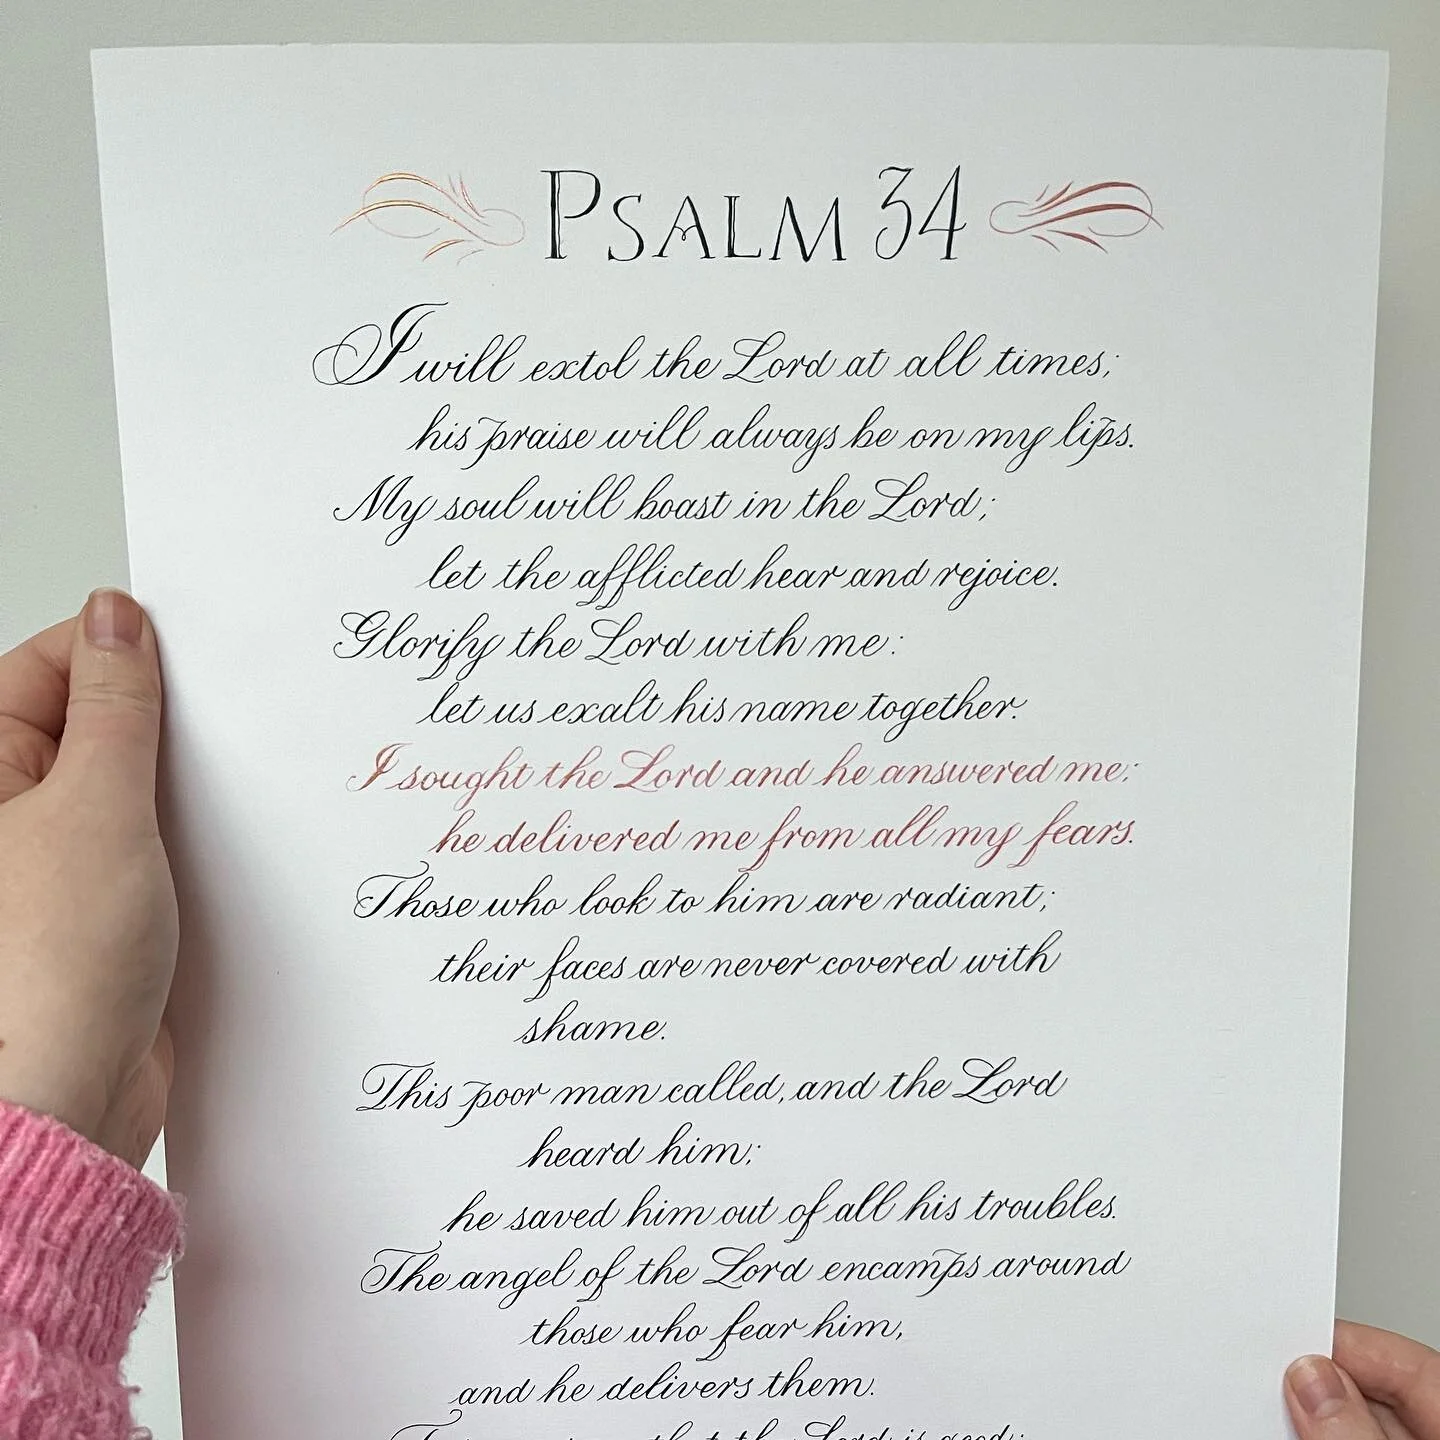 PSALM 34
I will extol the Lord at all times;
his praise will always be on my lips.
My soul will boast in the Lord;
let the afflicted hear and rejoice.
Glorify the Lord with me:
let us exalt his name together.
I sought the Lord and he answered me;
he delivered me from all my fears.
Those who look to him are radiant;
their faces are never covered with
shame.
This poor man called, and the Lord
heard him;
he saved him out of all his troubles.
The angel of the Lord encamps around
those who fear him,
and he delivers them.
that the Lord is good;